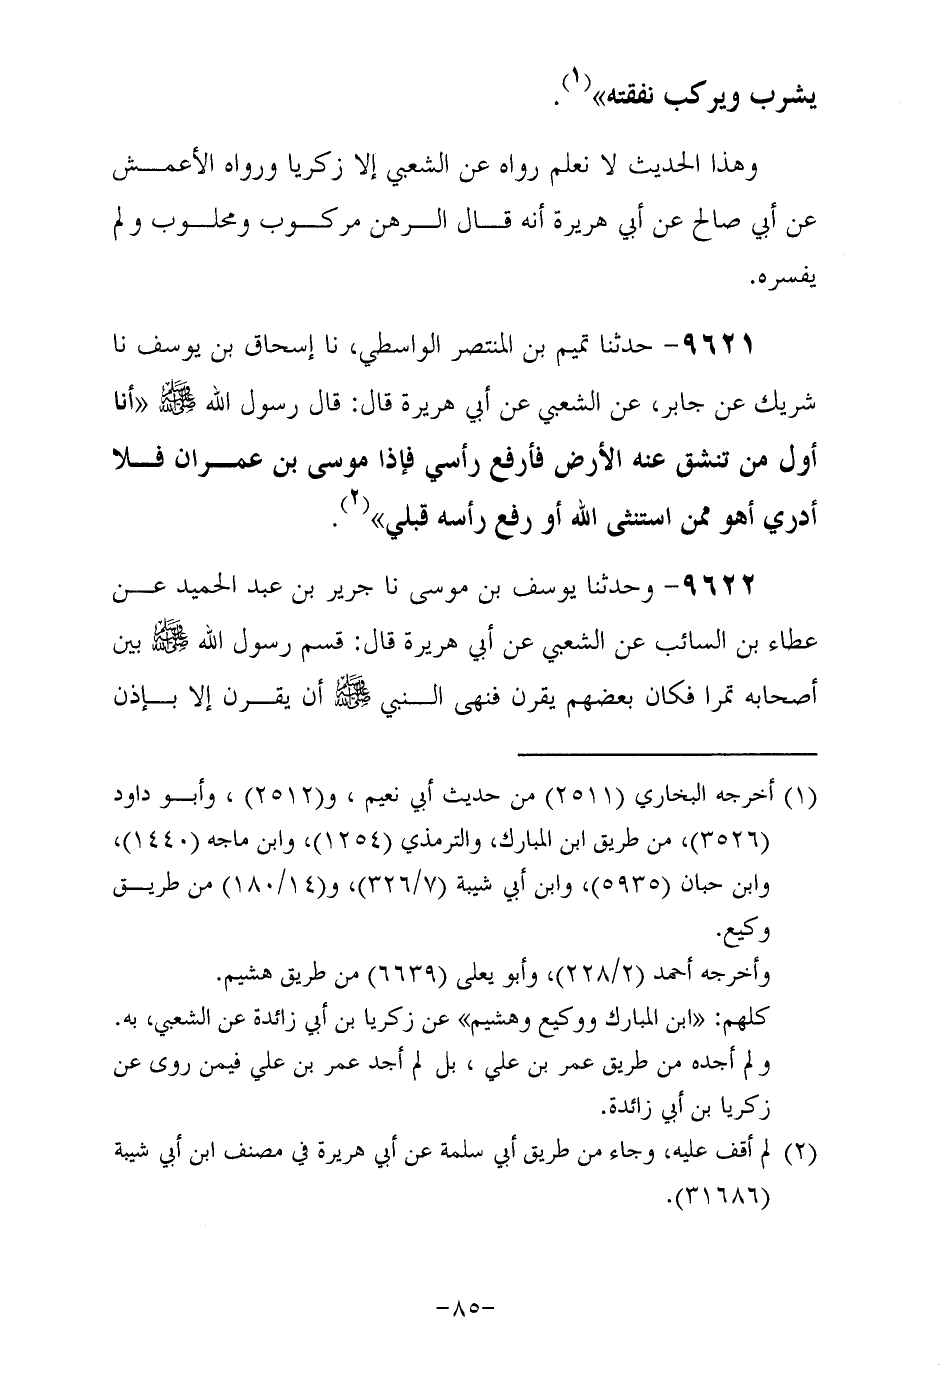 يشرب ويركب نفقته»(١).
وهذا الحديث لا نعلم رواه عن الشعبي إلا زكريا ورواه الأعمش
عن أبي صالح عن أبي هريرة أنه قال الرهن مركوب ومحلوب ولم
يفسره.
٩٦٢١- حدثنا تميم بن المنتصر الواسطي، نا إسحاق بن يوسف نا
شريك عن جابر، عن الشعبي عن أبي هريرة قال: قال رسول الله ﷺ «أنا
أول من تنشق عنه الأرض فأرفع رأسي فإذا موسى بن عمران فلا
أدري أهو ممن استثنى الله أو رفع رأسه قبلي»(٢).
٩٦٢٢- وحدثنا يوسف بن موسى نا جرير بن عبد الحميد عن
عطاء بن السائب عن الشعبي عن أبي هريرة قال: قسم رسول الله ﷺ بين
أصحابه تمرا فكان بعضهم يقرن فنهى النبي ﷺ أن يقرن إلا بإذن
(١) أخرجه البخاري (٢٥١١) من حديث أبي نعيم ، و(٢٥١٢) ، وأبو داود
(٣٥٢٦)، من طريق ابن المبارك، والترمذي (١٢٥٤)، وابن ماجه (١٤٤٠)،
وابن حبان (٥٩٣٥)، وابن أبي شيبة (٣٢٦/٧)، و(١٨٠/١٤) من طريق
وكيع.
وأخرجه أحمد (٢٢٨/٢)، وأبو يعلى (٦٦٣٩) من طريق هشيم.
كلهم: «ابن المبارك ووكيع وهشيم» عن زكريا بن أبي زائدة عن الشعبي، به.
ولم أجده من طريق عمر بن علي ، بل لم أجد عمر بن علي فيمن روى عن
زكريا بن أبي زائدة.
(٢) لم أقف عليه، وجاء من طريق أبي سلمة عن أبي هريرة في مصنف ابن أبي شيبة
(٣١٦٨٦).
-٨٥-